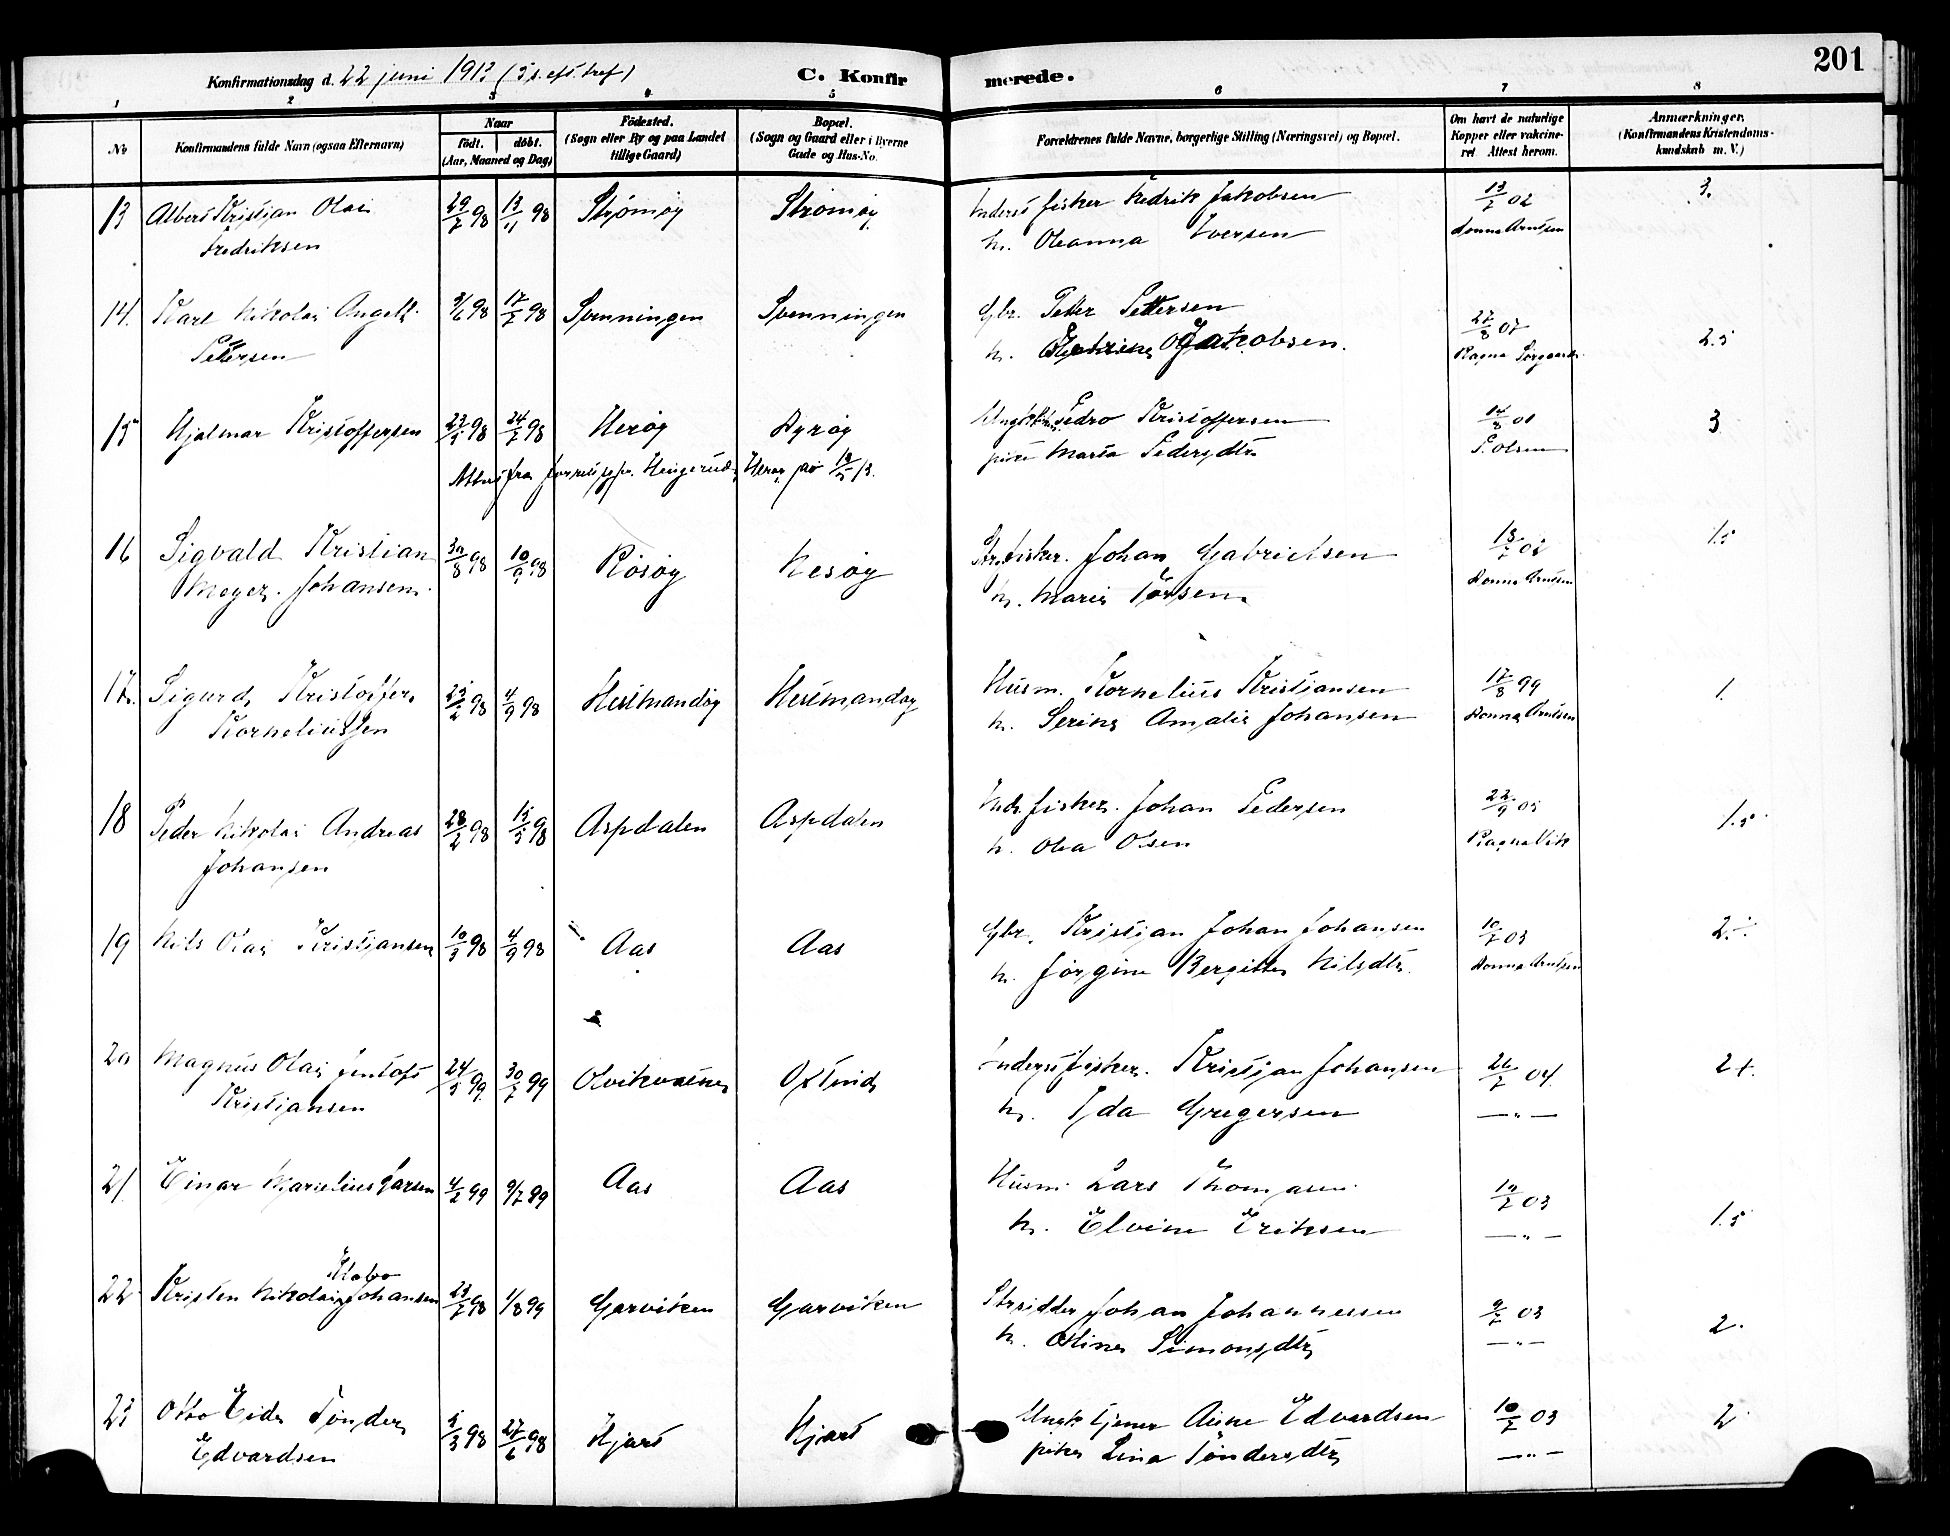 201
Konfirmationsdag d. 22 juni 1913 (5 s. eft. tref)
C. Konfirmerede.
1 2 3 4 5 6 7 8
No
Konfirmandens fulde Navn (ogsaa Efternavn)
Naar
født. døbt.
(Aar, Maaned og Dag)
Fødested.
(Sogn eller By og paa Landet
tillige Gaard)
Bopæl.
(Sogn og Gaard eller i Byerne
Gade og Hus-No.
Forældrenes fulde Navne, borgerlige Stilling (Næringsvei) og Bopæl.
Om havt de naturlige
Kopper eller vakcine-
ret Attest herom.
Anmærkninger.
(Konfirmandens Kristendoms-
kundskab m. V.)
13 Albert Kristjan Olai 29/7 98 13/11 98 Strømøy Strømøy Inderst fisker Fredrik Jakobsen 13/7 02 3.
Fredriksen h. Oleanna Iversen Donna Arntsen
14. Karl Nikolai Angell 3/6 98 17/7 98 Svenningen Svenningen Gbr. Petter Pettersen 27/8 07
Pettersen h. Jakobsen. Ragna Sørgaard 2.5
15 Hjalmar Kristoffersen 23/5 98 24/7 98 Herøy Dyrøy Ungk. Pedro Kristoffersen 14/8 01 3
pike Maria Pedersdtr P. Olsen
Attest fra Herøy
16 Sigvald Kristian 30/8 98 10/9 98 Røsøy Nesøy fisker. Johan Gabrielsen 13/7 02 1.5
Meyer Johansen. h. Marie Torsen Donna Arntsen
17. Sigurd Kristoffer 25/2 98 4/9 98 Hestmandøy Hestmandøy Husm. Kornelius Kristjansen 17/8 99 1.
Korneliussen h. Serine Amalie Johansen Donna Arntsen
18 Peder Nikolai Andreas 28/2 98 15/5 98 Aspdalen Aspdalen Inds. fisker. Johan Pedersen 22/9 05 1.5
Johansen h. Olea Olsen Ragna Vik
19 Nils Olai Kristjansen 10/3 98 4/9 98 Aas Aas Gbr. Kristjan Johan Johansen 10/7 03 2.÷
h. Jørgine Bergitte Nilsdtr. Donna Arntsen
20 Magnus Olai Jentoft 24/5 99 30/7 99 Olvikvatnet Oftind Inderst fisker. Kristjan Johansen 26/7 04 2+.
Kristjansen h. Ida Gregersen — " —
21 Einar Larsen 4/2 99 9/7 99 Aas Aas Husm. Lars Thomasen 10/7 03
h. Elvine Eriksen — " — 1.5
22 Kristen Nikolai Johansen 23/7 98 1/8 99 Garviken Garviken Strsidder Johan Johannessen 9/7 03
h. Oline Simonsdtr — " — 2.
23 Otto Eide Tønder 5/3 98 27/6 98 Hjart Hjart Ungk tjener Arne Edvardsen 10/7 03 2
Edvardsen pike Lina Tøndersdtr — " —